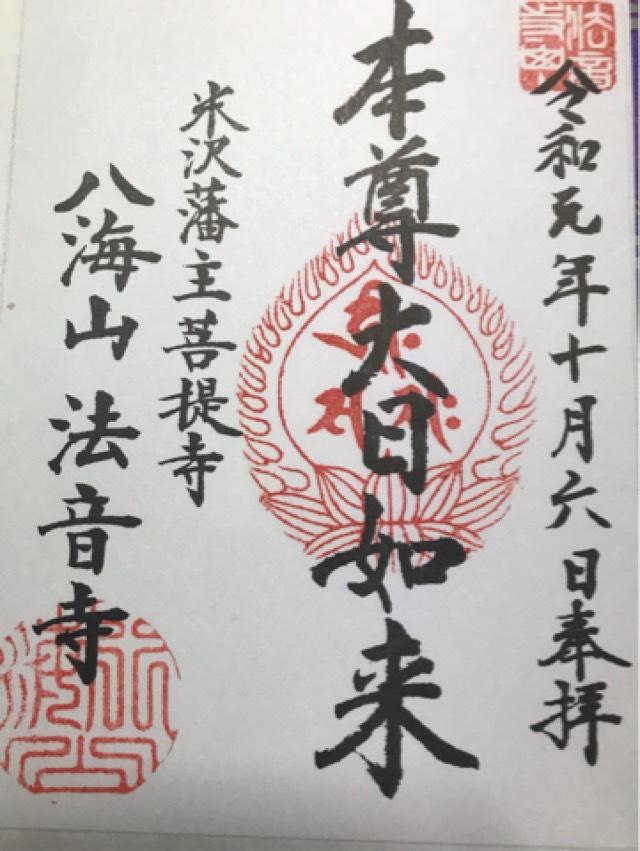 令和元年十月六日奉拝
本尊大日如来
米沢藩主菩提寺
八海山法音寺